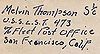 Melvin Thompson S 2/c
U.S.S. L.S.T. 473
% Fleet Post Office
San Francisco, Calif.